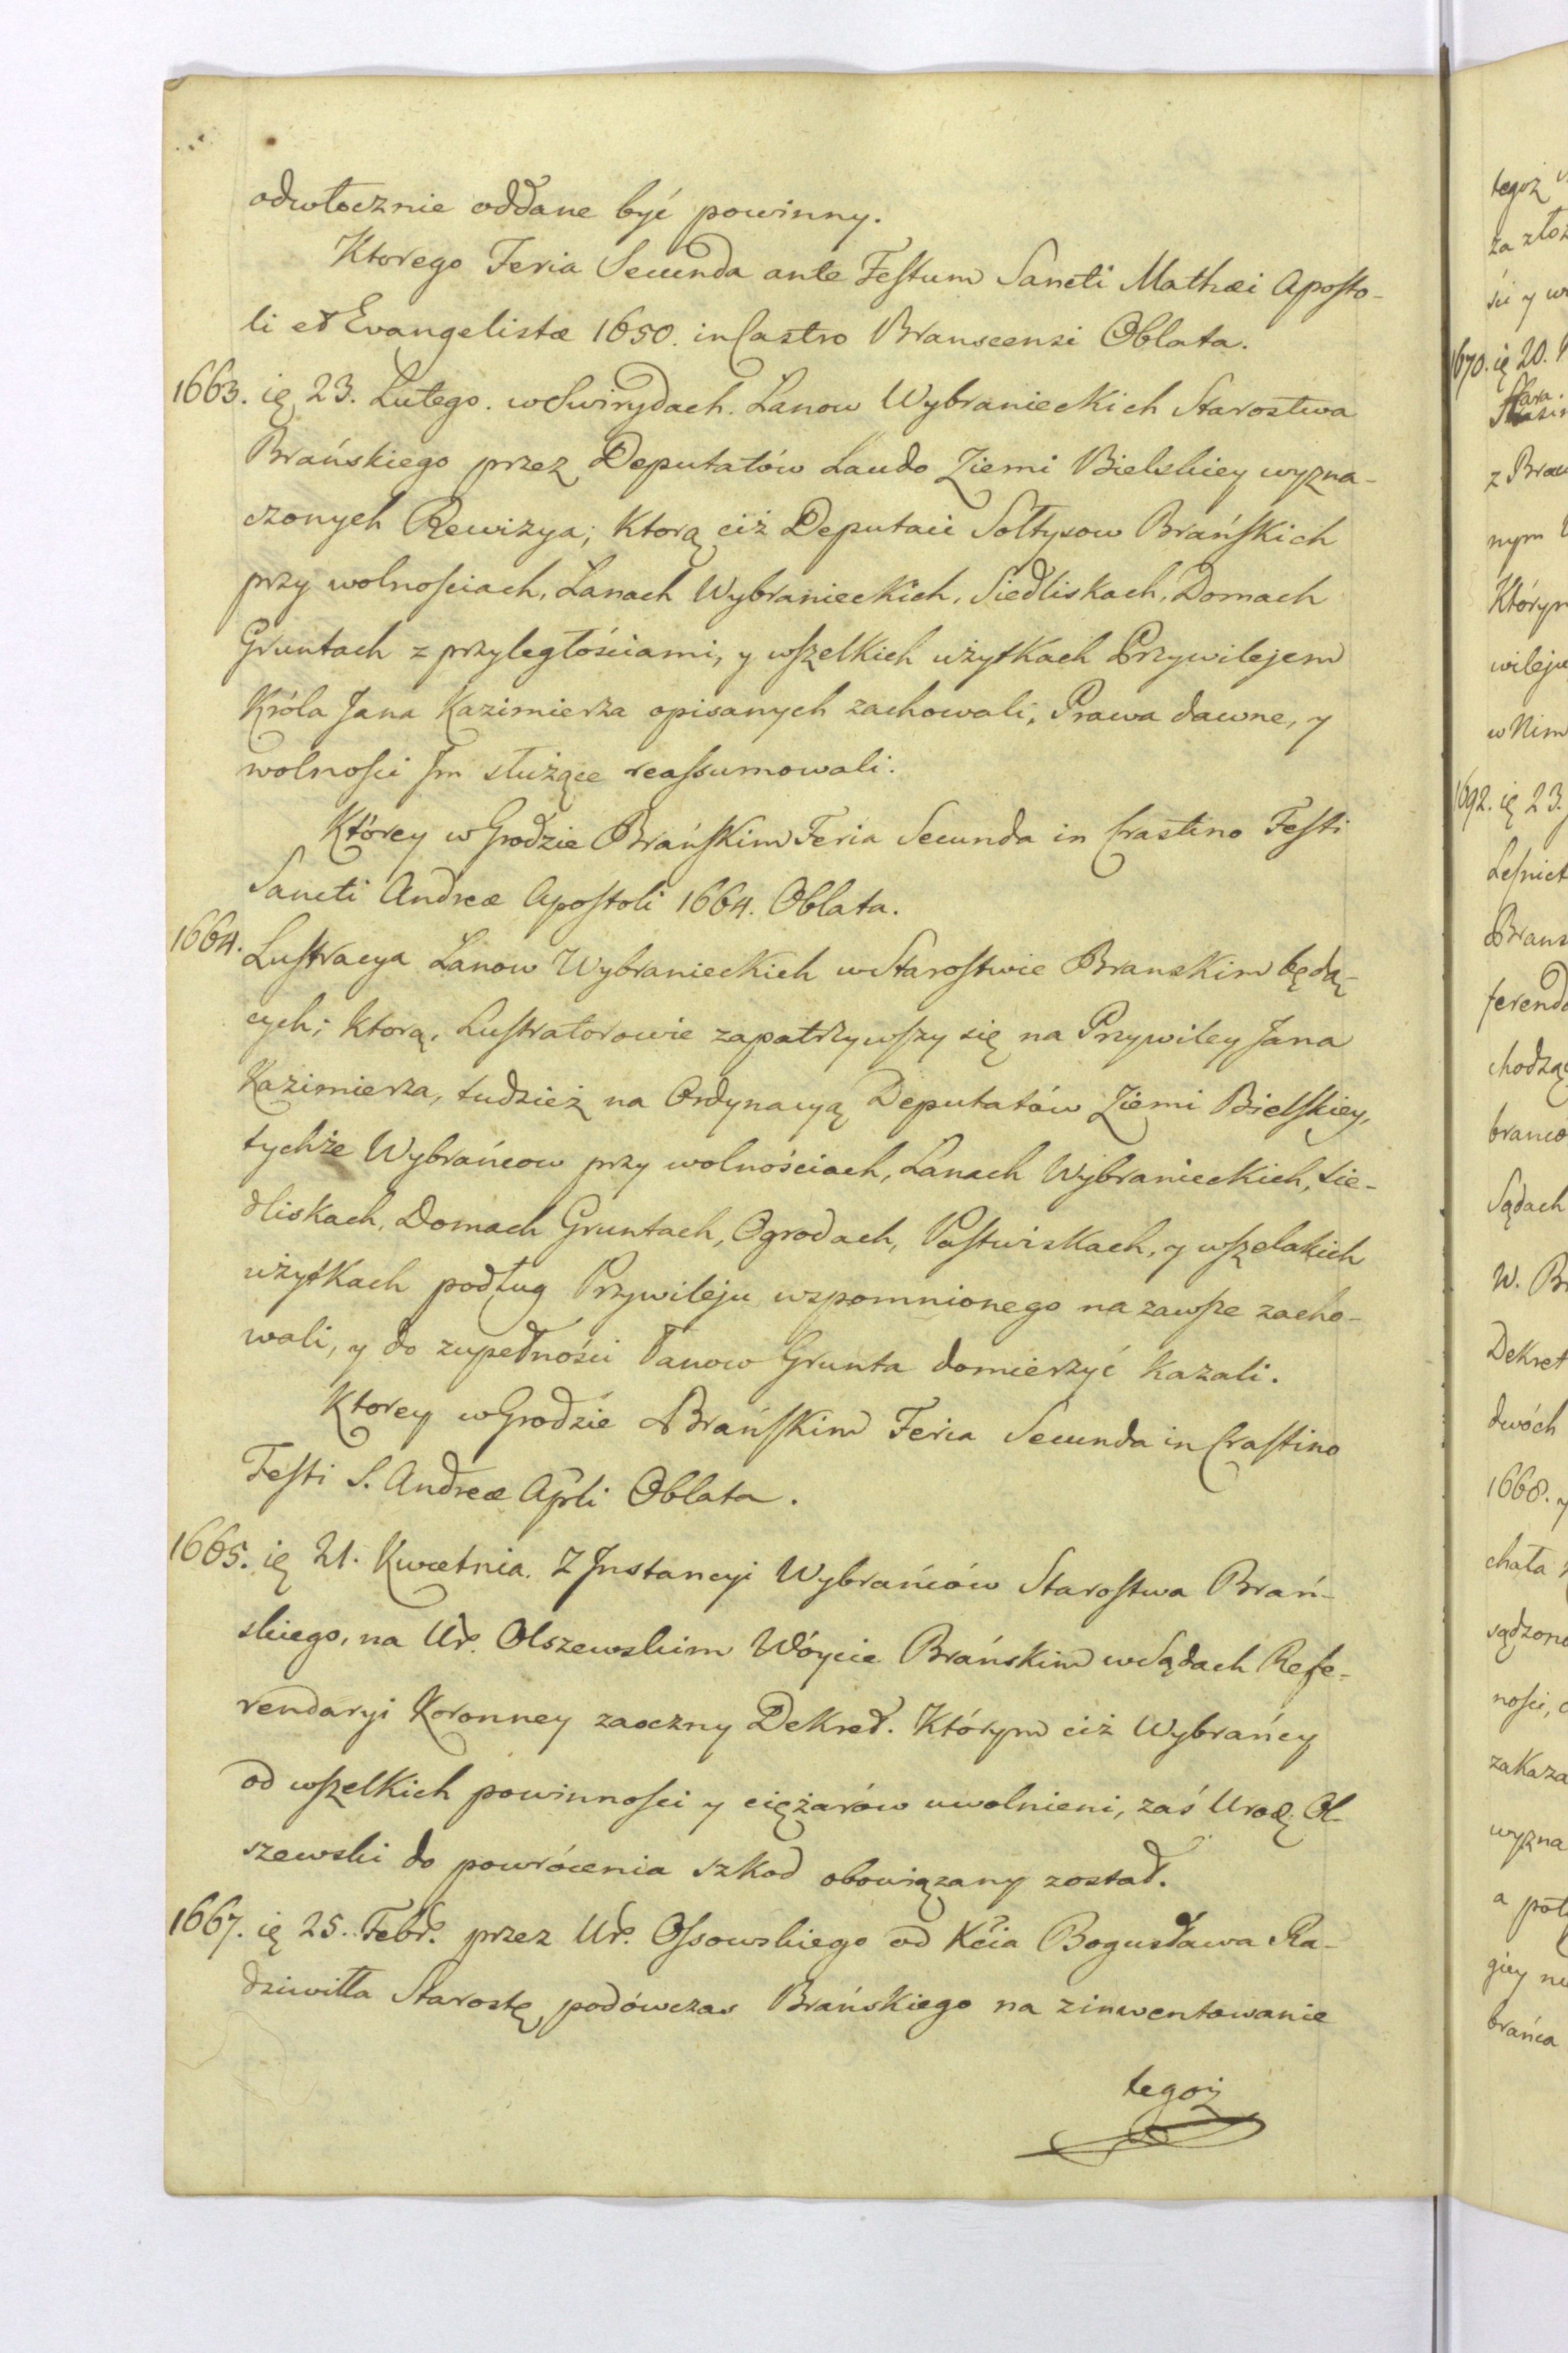 odwłocznie oddane być powinny.
Ktorego Feria Secunda ante Festum Sancti Mathæi Aposto-
li et Evangelistæ 1650. in Castro Branscensi Oblata.
1663. ię 23. Lutego. w Swirydach. Lanow Wybranieckich Starostwa
Brańskiego przez Deputatów Laudo Ziemi Bielskiey wyzna-
czonych Rewizya; Ktorą ciż Deputaci Sołtysow Brańskich
przy wolnościach, Lanach Wybranieckich, Siedliskach, Domach
Gruntach z przyległościami, y wszelkich użytkach Przywilejem
Króla Jana Kazimierza opisanych zachowali, Prawa dawne, y
wolności Jm służące reassumowali.
Którey w Grodzie Brańskim Feria Secunda in Crastino Festi
Sancti Andreæ Apostoli 1664. Oblata.
1664. Lustracya Lanow Wybranieckich w Starostwie Branskim będą-
cych; Ktorą, Lustratorowie zapatrzywszy się na Przywiley Jana
Kazimierza, tudzież na Ordynacyą Deputatów Ziemi Bielskiey,
tychże Wybrańcow przy wolnościach, Lanach Wybranieckich, Sie-
dliskach, Domach Gruntach, Ogrodach, Pastwiskach, y wszelakich
użytkach podług Przywileju wspomnionego na zawsze zacho-
wali, y do zupełności Łanow Grunta domierzyć Kazali.
Ktorey w Grodzie Brańskim Feria Secunda in Crastino
Festi S. Andreæ Apłi Oblata.
1665. ię 21. Kwietnia. Z Jnstancyi Wybrańców Starostwa Brań-
skiego, na Ur. Olszewskim Wóycie Brańskim w Sądach Refe-
rendaryi Koronney zaoczny Dekret. Którym ciż Wybrańcy
od wszelkich powinności y ciężarów uwolnieni, zaś Urodz. Ol-
szewski do powrócenia szkod obowiązany został.
1667. ię 25. Febr. przez Ur. Ossowskiego od Kcia Bogusława Ra-
dziwiłła Starostę podówczas Brańskiego na zinwentowanie
tegoż
tegoż
za złoż
ści y w
1670. ię 20.
z Bra
nym
Którym
wileju
w Nim
1692. ię 23.
Leśnict
Brans
ferend
chodzą
branco
Sądach
W. Br
Dekret
dwóch
1668. y
chała
sądzono
ności,
zakaza
wyzna
a poty
giey
brańca